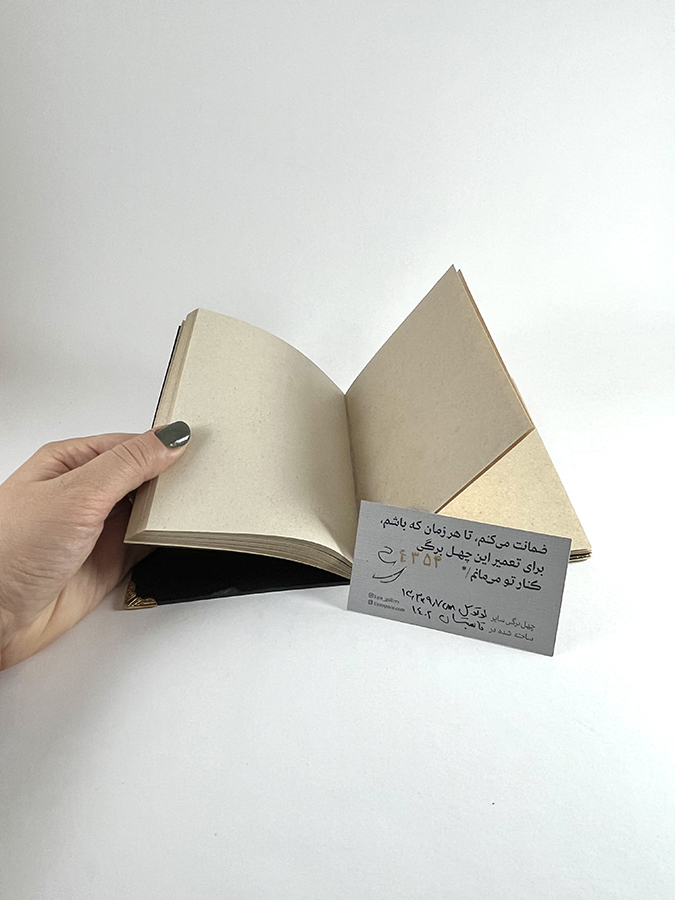 ضمانت می‌کنم، تا هر زمان که باشم،
برای تعمیر این چهل برگی
۴۳۵۴
کنار تو می‌مانم/*
چهل برگی سایز ۱۳٫۳×۹٫۷cm
ساخته شده در تابستان ۱۴۰۲